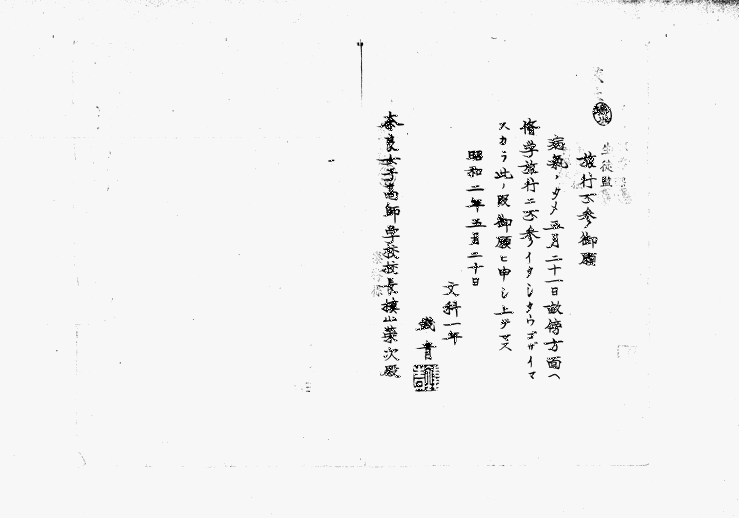 生徒監
旅行不参御願
病氣ノタメ五月二十一日畝傍方面ヘ
修学旅行ニ不参イタシタウゴザイマ
スカラ此ノ段御願ヒ申シ上ゲマス
昭和二年五月二十日
文科一年
錢青
奈良女子高師学校校長槇山榮次殿